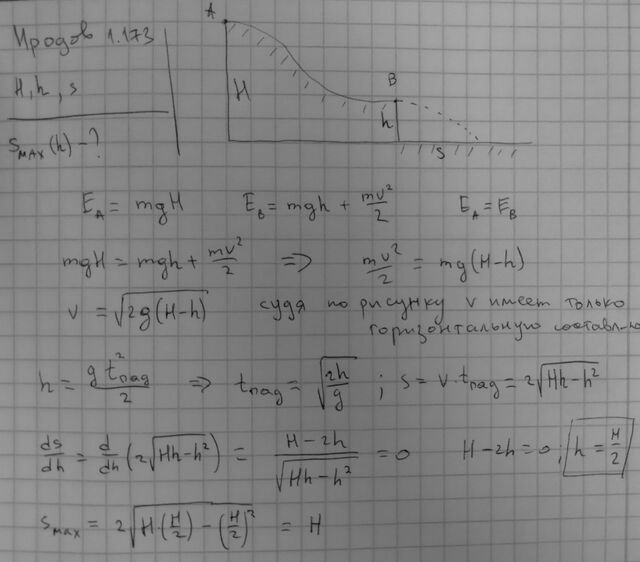 Иродов 1.173
H, h, s
s_max(h) - ?
A
H
B
h
s
E_A = mgH E_B = mgh + mv²/2 E_A = E_B
mgH = mgh + mv²/2 => mv²/2 = mg(H-h)
v = √(2g(H-h)) судя по рисунку v имеет только
горизонтальную составл-ю
h = g t²_пад/2 => t_пад = √(2h/g) ; s = v·t_пад = 2√(Hh-h²)
ds/dh = d/dh (2√(Hh-h²)) = (H-2h)/√(Hh-h²) = 0 H-2h=0; h = H/2
s_max = 2√(H·(H/2) - (H/2)²) = H